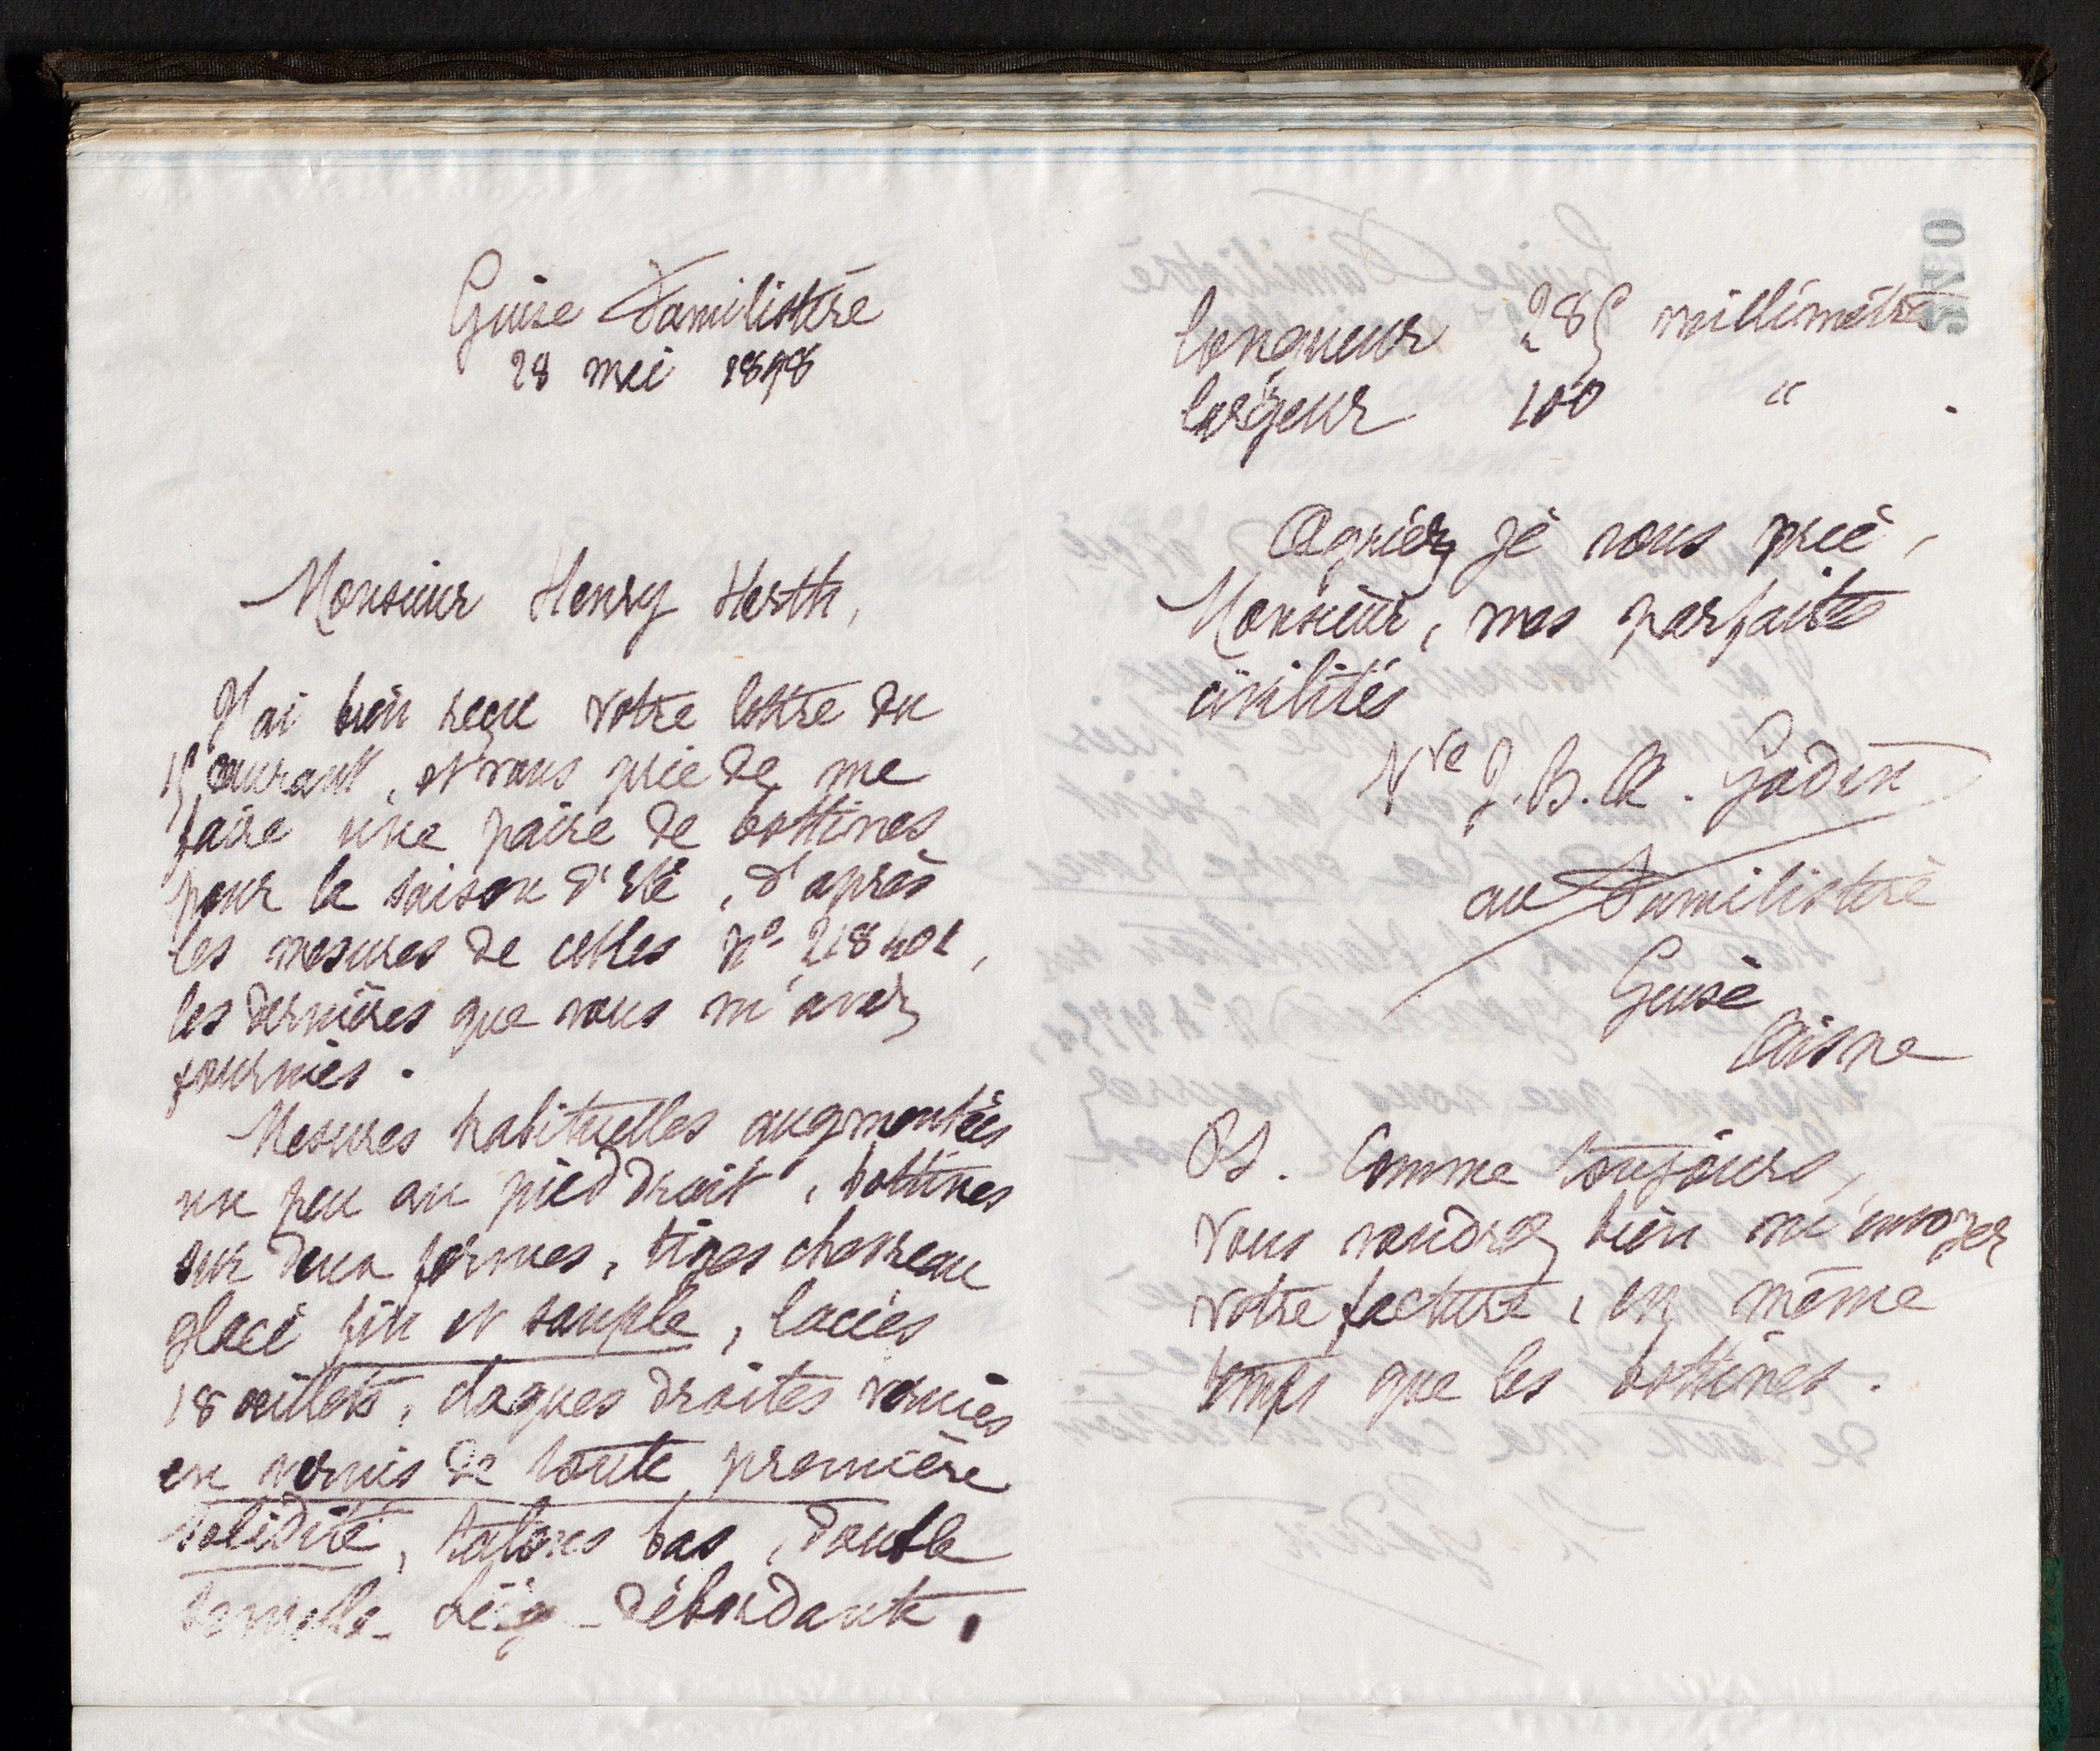 Guise Familistère
28 mai 1898
Monsieur Henry Herth,
J'ai bien reçu votre lettre du
15 courant, et vous prie de me
faire une paire de bottines
pour la saison d'été, d'après
les mesures de celles no 218401,
les dernières que vous m'avez
fournies.
Mesures habituelles augmentées
un peu au pied droit, bottines
sur deux formes, tiges chevreau
glacé fin et souple, lacées
18 œillets, claques droites vernies
en vernis de toute première
solidité, talons bas, double
semelle débordante,
longueur 285 millimètres
largeur 100 "
Agréez je vous prie,
Monsieur, mes parfaites
civilités
Vve J. B. A. Godin
au Familistère
Guise
Aisne
PS. Comme toujours,
vous voudrez bien m'envoyer
votre facture, en même
temps que les bottines.